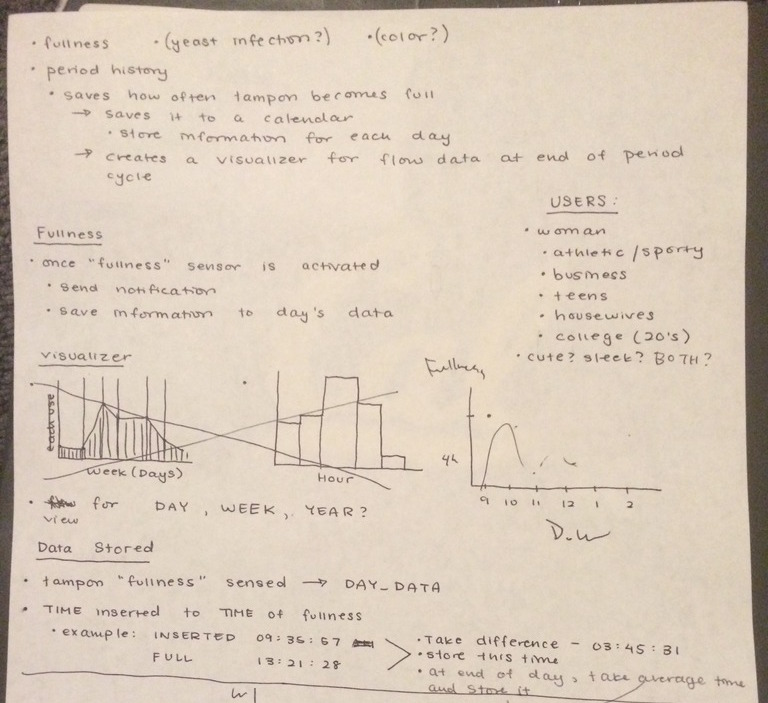 • fullness • (yeast infection?) • (color?)
• period history
• saves how often tampon becomes full
→ saves it to a calendar
• store information for each day
→ creates a visualizer for flow data at end of period
cycle
USERS:
• woman
• athletic/sporty
• business
• teens
• housewives
• college (20's)
• cute? sleek? BOTH?
Fullness
• once "fullness" sensor is activated
• send notification
• save information to day's data
Visualizer
each use
Week (Days)
Hour
Fullness
4h
9 10 11 12 1 2
• for DAY, WEEK, YEAR?
view
Data Stored
• tampon "fullness" sensed → DAY_DATA
• TIME inserted to TIME of fullness
• example: INSERTED 09:35:57
FULL 13:21:28
• Take difference - 03:45:31
• store this time
• at end of day, take average time
and store it